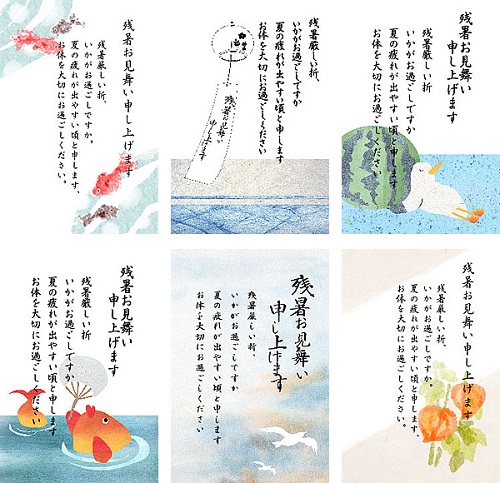 残暑お見舞い申し上げます
残暑厳しい折、
いかがお過ごしですか。
夏の疲れが出やすい頃と申します。
お体を大切にお過ごしください。
残暑厳しい折
いかがお過ごしですか
夏の疲れが出やすい頃と申します
お体を大切にお過ごしください
残暑お見舞い
申し上げます
残暑お見舞い
申し上げます
残暑厳しい折
いかがお過ごしですか
夏の疲れが出やすい頃と申します
お体を大切にお過ごしください
残暑お見舞い
申し上げます
残暑厳しい折
いかがお過ごしですか
夏の疲れが出やすい頃と申します
お体を大切にお過ごしください
残暑お見舞い
申し上げます
残暑厳しい折、
いかがお過ごしですか
夏の疲れが出やすい頃と申します
お体を大切にお過ごしください
残暑お見舞い申し上げます
残暑厳しい折、
いかがお過ごしですか。
夏の疲れが出やすい頃と申します。
お体を大切にお過ごしください。